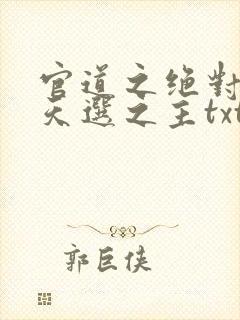 官道之绝對
天選之主txt
郭巨俠